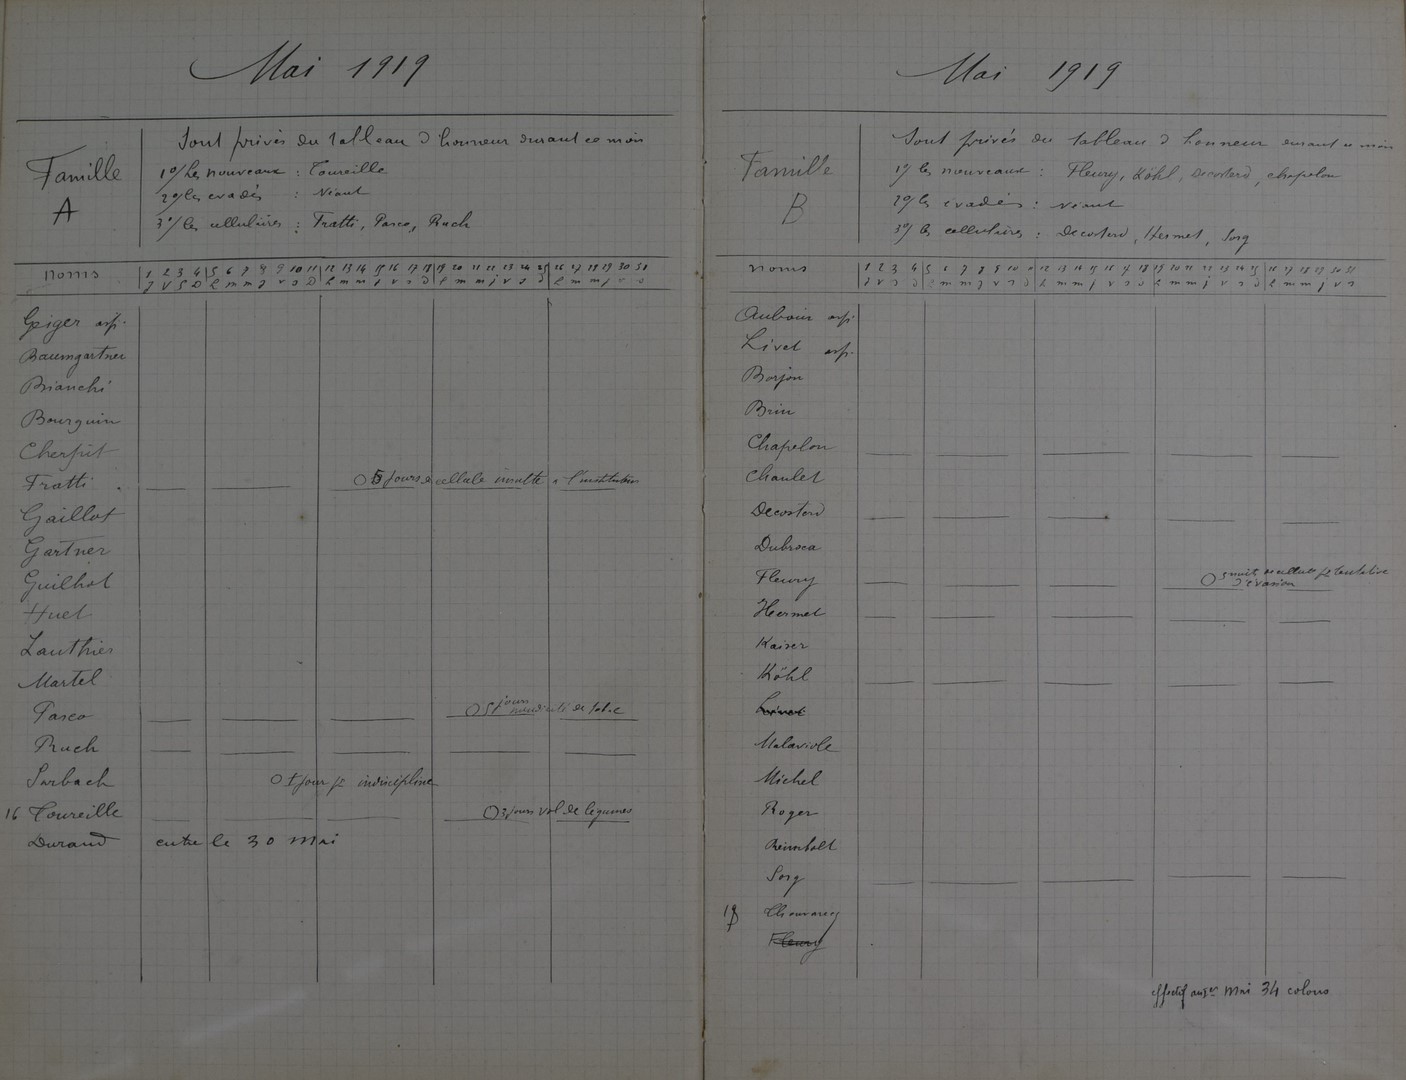 Mai 1919
Famille
A
Sont privés du tableau d'honneur durant ce mois
1º/ les nouveaux : Toureille
2º/ les evadés : Néant
3º/ les cellulaires : Fratti, Pasco, Ruch
noms
1 2 3 4 5 6 7 8 9 10 11 12 13 14 15 16 17 18 19 20 21 22 23 24 25 26 27 28 29 30 31
j v s D l m m j v s D l m m j v s d l m m j v s d l m m j v s
Geiger asp.
Baumgartner
Bianchi
Bourquin
Cherpit
Fratti 5 jours cellule insulte à l'institution
Gaillot
Gartner
Guilhot
Huet
Lauthier
Martel
Pasco 5 jours de
Ruch
Surbach 1 jour pr indiscipline
16 Toureille 3 jours vol de légumes
Durand entre le 30 mai
Mai 1919
Famille
B
Sont privés du tableau d'honneur durant ce mois
1º/ les nouveaux : Fleury, Köhl, Decosterd, Chapelon
2º/ les évadés : néant
3º/ les cellulaires : Decosterd, Hermet, Sorg
noms
1 2 3 4 5 6 7 8 9 10 11 12 13 14 15 16 17 18 19 20 21 22 23 24 25 26 27 28 29 30 31
j v s d l m m j v s d l m m j v s d l m m j v s d l m m j v s
Auboin asp.
Livet asp.
Borjon
Brin
Chapelon
Chaulet
Decosterd
Dubroca
Fleury cellule pr tentative
d'évasion
Hermet
Kaiser
Köhl
Malaviole
Michel
Roger
Reimbolt
Sorg
Fleury
effectif au 1er Mai 34 colons